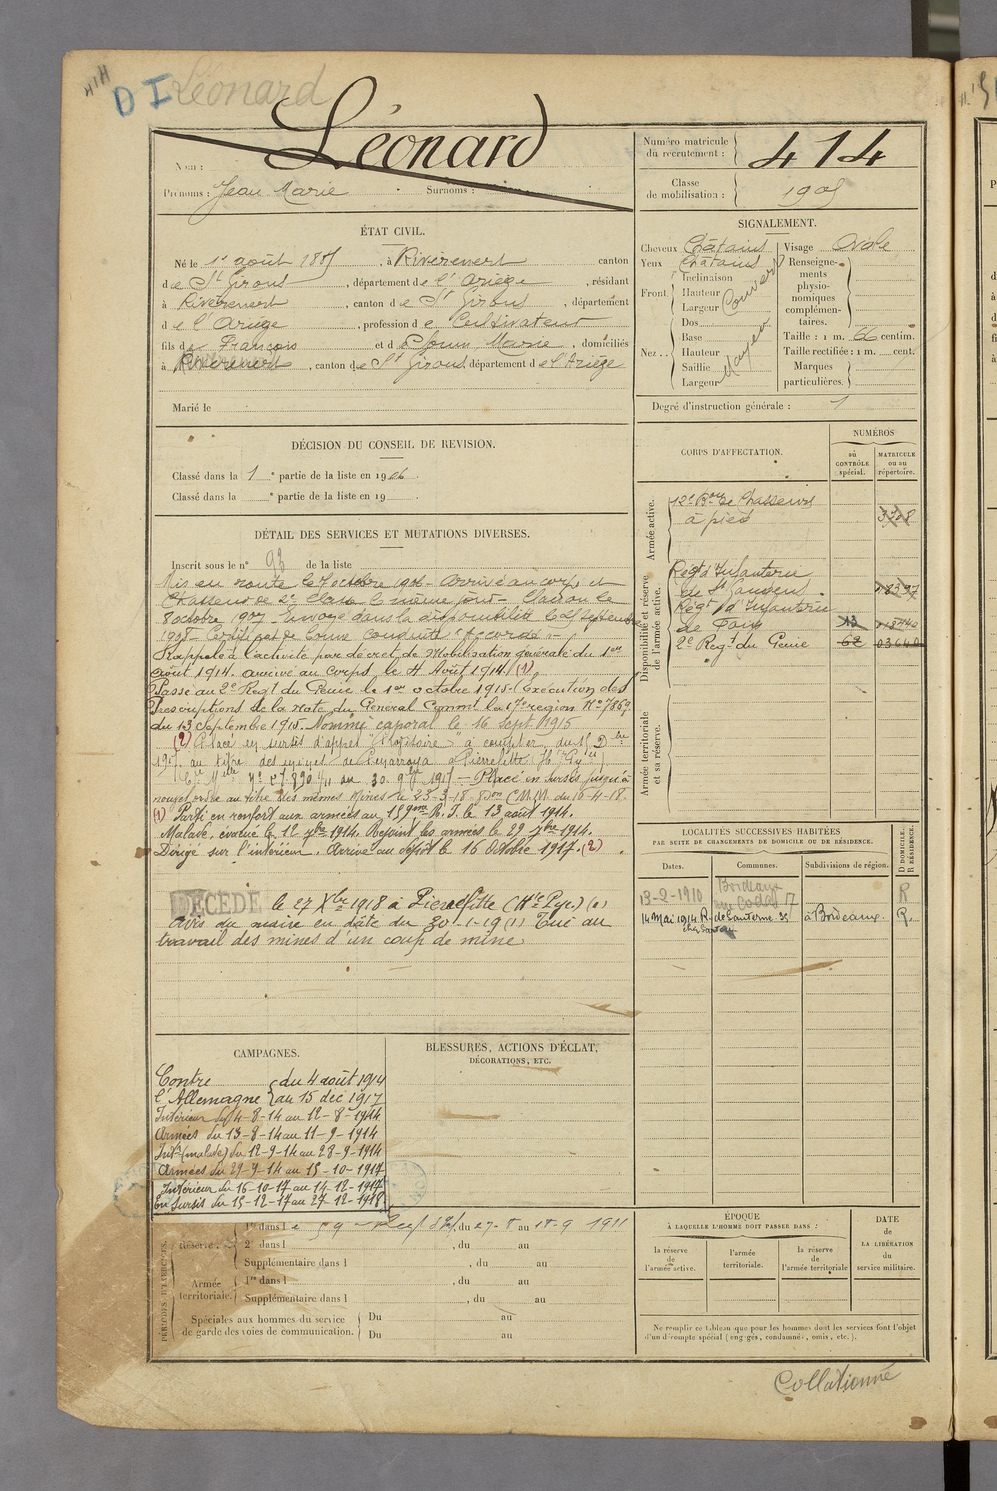 414
D I Léonard
Léonard
Nom :
Prénoms : Jean Marie Surnoms :
Numéro matricule du recrutement : 414
Classe de mobilisation : 1905
ÉTAT CIVIL.
Né le 1er août 1885, à Riverenert canton
de St Girons, département de l'Ariège, résidant
à Riverenert, canton de St Girons, département
de l'Ariège, profession de Cultivateur
fils de François et de Soum Marie, domiciliés
à Riverenert, canton de St Girons, département de l'Ariège
Marié le
SIGNALEMENT.
Cheveux Châtains
Yeux Châtains
Front. Inclinaison
Hauteur Couvert
Largeur
Nez.. Dos
Base
Hauteur Moyen
Saillie
Largeur
Visage Ovale
Renseignements physionomiques complémentaires.
Taille : 1 m. 66 centim.
Taille rectifiée : 1 m. cent.
Marques particulières.
Degré d'instruction générale : 1
DÉCISION DU CONSEIL DE REVISION.
Classé dans la 1e partie de la liste en 1906.
Classé dans la e partie de la liste en 19 .
DÉTAIL DES SERVICES ET MUTATIONS DIVERSES.
Inscrit sous le n° 93 de la liste
Mis en route le 7 octobre 1906 - arrivé au corps et
Chasseur de 2e Classe le même jour - Clairon le
8 octobre 1907 - Envoyé dans la disponibilité le 25 septembre
1908 - Certificat de bonne conduite "Accordé" -
Rappelé à l'activité par décret de Mobilisation générale du 1er
août 1914. arrivé au Corps le 4 Août 1914. (1)
Passé au 2e Régt du Génie le 1er octobre 1915 (Exécution des
Prescriptions de la note du Général Commt la 17e région No 7869
du 13 Septembre 1915. Nommé caporal le 16 Sept 1915
(2) Placé en sursis d'appel à compter du 15 Dbre
1917 au titre des mines de Penarroya à Pierrefitte (Htes Pyr)
du 30. 9bre 1917 - Placé en sursis jusqu'à
nouvel ordre au titre des mêmes Mines le 23-3-18. Don C.M.M. du 16-4-18.
(1) Parti en renfort aux armées au 159me R. I. le 13 août 1914.
Malade, évacué le 12 7bre 1914. Rejoint les armées le 29 7bre 1914.
Dirigé sur l'intérieur. Arrivé au dépôt le 16 Octobre 1917. (2)
DÉCÉDÉ le 27 Xbre 1918 à Pierrefitte (Htes Pyr.)
Avis du maire en date du 30-1-19 (1) Tué au
travail des mines d'un coup de mine
CORPS D'AFFECTATION.
NUMÉROS
au CONTRÔLE spécial.
MATRICULE ou au répertoire.
Armée active.
12e Bon de Chasseurs
à pied 3708
Disponibilité et réserve de l'armée active.
Régt d'Infanterie
de St Gaudens
Régt d'Infanterie
de Foix
2e Régt du Génie
Armée territoriale et sa réserve.
LOCALITÉS SUCCESSIVES HABITÉES
PAR SUITE DE CHANGEMENTS DE DOMICILE OU DE RÉSIDENCE.
Dates. Communes. Subdivisions de région. D DOMICILE. R RÉSIDENCE.
13-2-1910 Bordeaux
17 R
14 Mai 1914 R. de Sauterne 35 à Bordeaux. R.
CAMPAGNES.
Contre l'Allemagne du 4 août 1914
au 15 déc 1917
Intérieur du 4-8-14 au 12-8-1914
Armées du 13-8-14 au 11-9-1914
Intr (malade) du 12-9-14 au 28-9-1914
Armées du 29-9-14 au 15-10-1917
Intérieur du 16-10-17 au 14-12-1917
En Sursis du 15-12-17 au 27-12-1918
BLESSURES, ACTIONS D'ÉCLAT,
DÉCORATIONS, ETC.
PÉRIODES D'EXERCICES.
Réserve.
1re dans le 59 Regt d'Inf. du 27-8 au 18-9 1911
2e dans l , du au
Supplémentaire dans l , du au
Armée territoriale.
1re dans l , du au
Supplémentaire dans l , du au
Spéciales aux hommes du service de garde des voies de communication.
Du au
Du au
ÉPOQUE
À LAQUELLE L'HOMME DOIT PASSER DANS :
la réserve de l'armée active.
l'armée territoriale.
la réserve de l'armée territoriale
DATE de LA LIBÉRATION du service militaire.
Ne remplir ce tableau que pour les hommes dont les services font l'objet
d'un décompte spécial (engagés, condamnés, omis, etc.).
Collationné